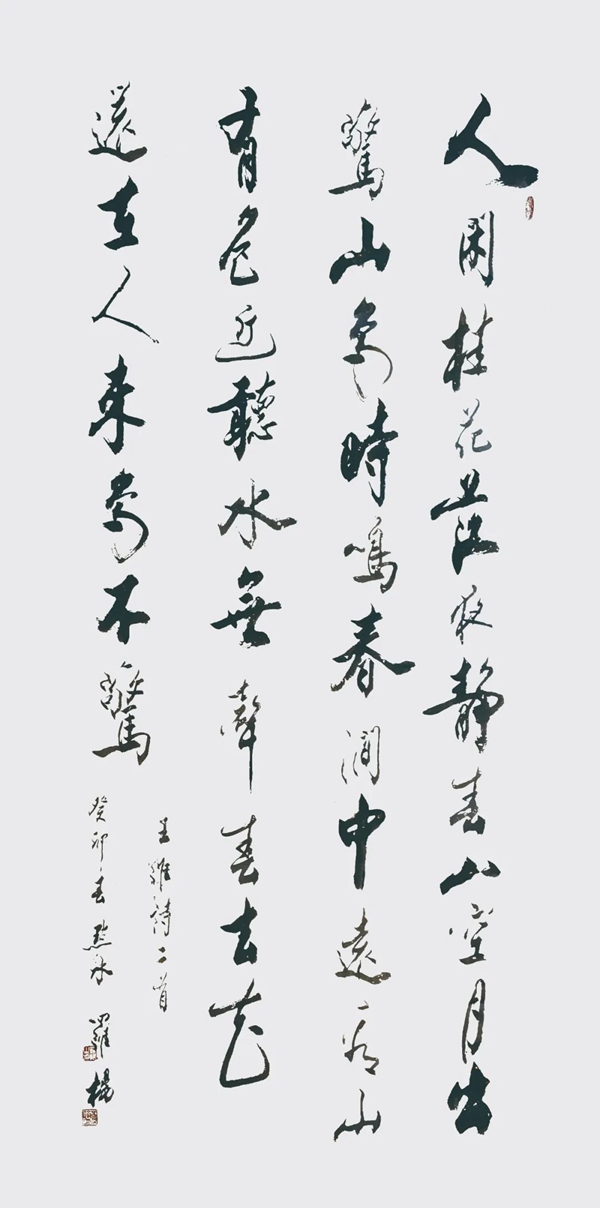 人閑桂花落夜靜春山空月出
驚山鳥時鳴春澗中遠看山
有色近聽水無聲春去花
還在人來鳥不驚
王維詩二首
癸卯春 羅楊